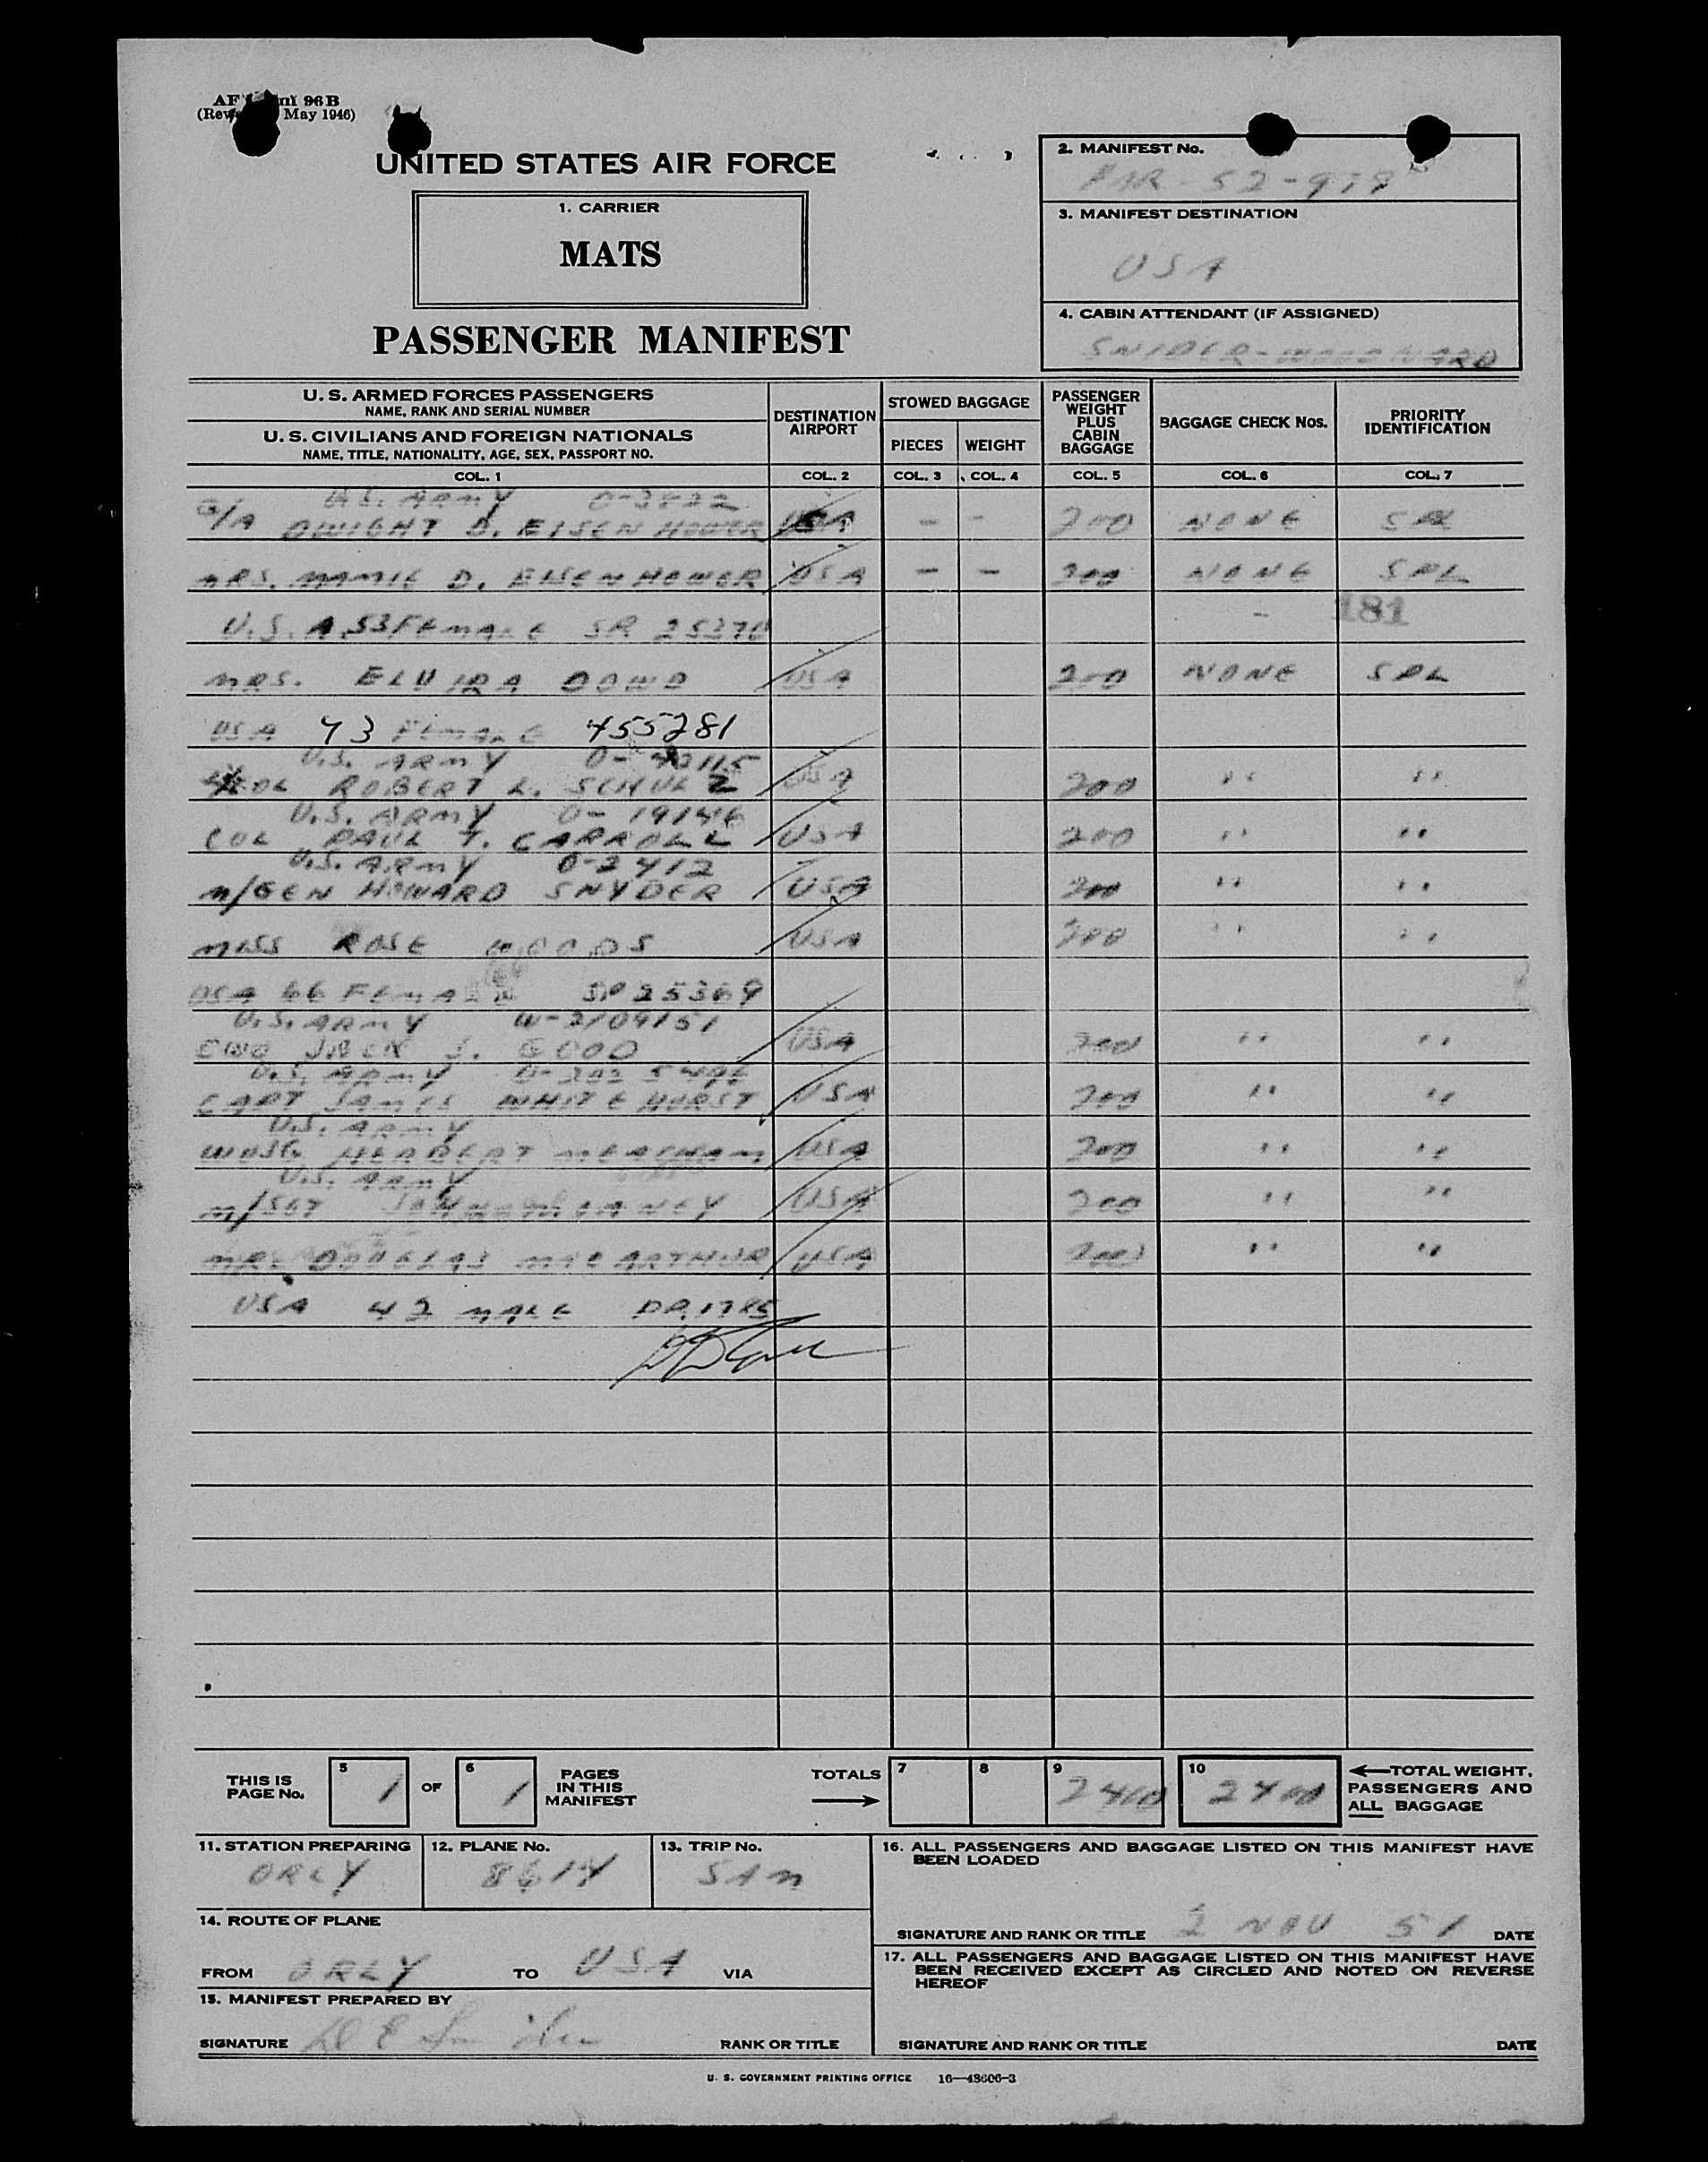 AF 96B
May 1946)
UNITED STATES AIR FORCE
1. CARRIER
MATS
PASSENGER MANIFEST
2. MANIFEST No.
PAR - 52 - 979
3. MANIFEST DESTINATION
USA
4. CABIN ATTENDANT (IF ASSIGNED)
SNIDER - WOODWARD
U. S. ARMED FORCES PASSENGERS
NAME, RANK AND SERIAL NUMBER
U. S. CIVILIANS AND FOREIGN NATIONALS
NAME, TITLE, NATIONALITY, AGE, SEX, PASSPORT NO.
DESTINATION AIRPORT
STOWED BAGGAGE
PIECES WEIGHT
PASSENGER WEIGHT PLUS CABIN BAGGAGE
BAGGAGE CHECK Nos.
PRIORITY IDENTIFICATION
COL. 1 COL. 2 COL. 3 COL. 4 COL. 5 COL. 6 COL. 7
U.S. ARMY O-3822
G/A DWIGHT D. EISENHOWER USA - - 200 NONE SPL
MRS. MAMIE D. EISENHOWER USA - - 200 NONE SPL
U.S.A. 53 FEMALE SP 25370 - 181
MRS. ELVIRA DOWD USA 200 NONE SPL
USA 73 FEMALE 455281
U.S. ARMY
COL ROBERT L. SCHULZ USA 200 " "
U.S. ARMY O-19146
COL PAUL T. CARROLL USA 200 " "
U.S. ARMY O-3412
M/GEN HOWARD SNYDER USA 200 " "
MISS ROSE WOODS USA 200 " "
USA 66 FEMALE SP 25369
U.S. ARMY W-2109151
CWO JACK J. GOOD USA 200 " "
U.S. ARMY
CAPT JAMES WHITEHURST USA 200 " "
U.S. ARMY
HERBERT MEACHAM USA 200 " "
U.S. ARMY
M/SGT USA 200 " "
MR. DOUGLAS MACARTHUR USA 200 " "
USA 42 MALE DP. 1785
THIS IS PAGE No. 5 1 OF 6 1 PAGES IN THIS MANIFEST
TOTALS 7 8 9 2400 10 2400
TOTAL WEIGHT, PASSENGERS AND ALL BAGGAGE
11. STATION PREPARING
ORLY
12. PLANE No.
8614
13. TRIP No.
SAM
14. ROUTE OF PLANE
FROM ORLY TO USA VIA
15. MANIFEST PREPARED BY
SIGNATURE RANK OR TITLE
16. ALL PASSENGERS AND BAGGAGE LISTED ON THIS MANIFEST HAVE
BEEN LOADED
SIGNATURE AND RANK OR TITLE 2 NOV 51 DATE
17. ALL PASSENGERS AND BAGGAGE LISTED ON THIS MANIFEST HAVE
BEEN RECEIVED EXCEPT AS CIRCLED AND NOTED ON REVERSE
HEREOF
SIGNATURE AND RANK OR TITLE DATE
U. S. GOVERNMENT PRINTING OFFICE 16—48606-3